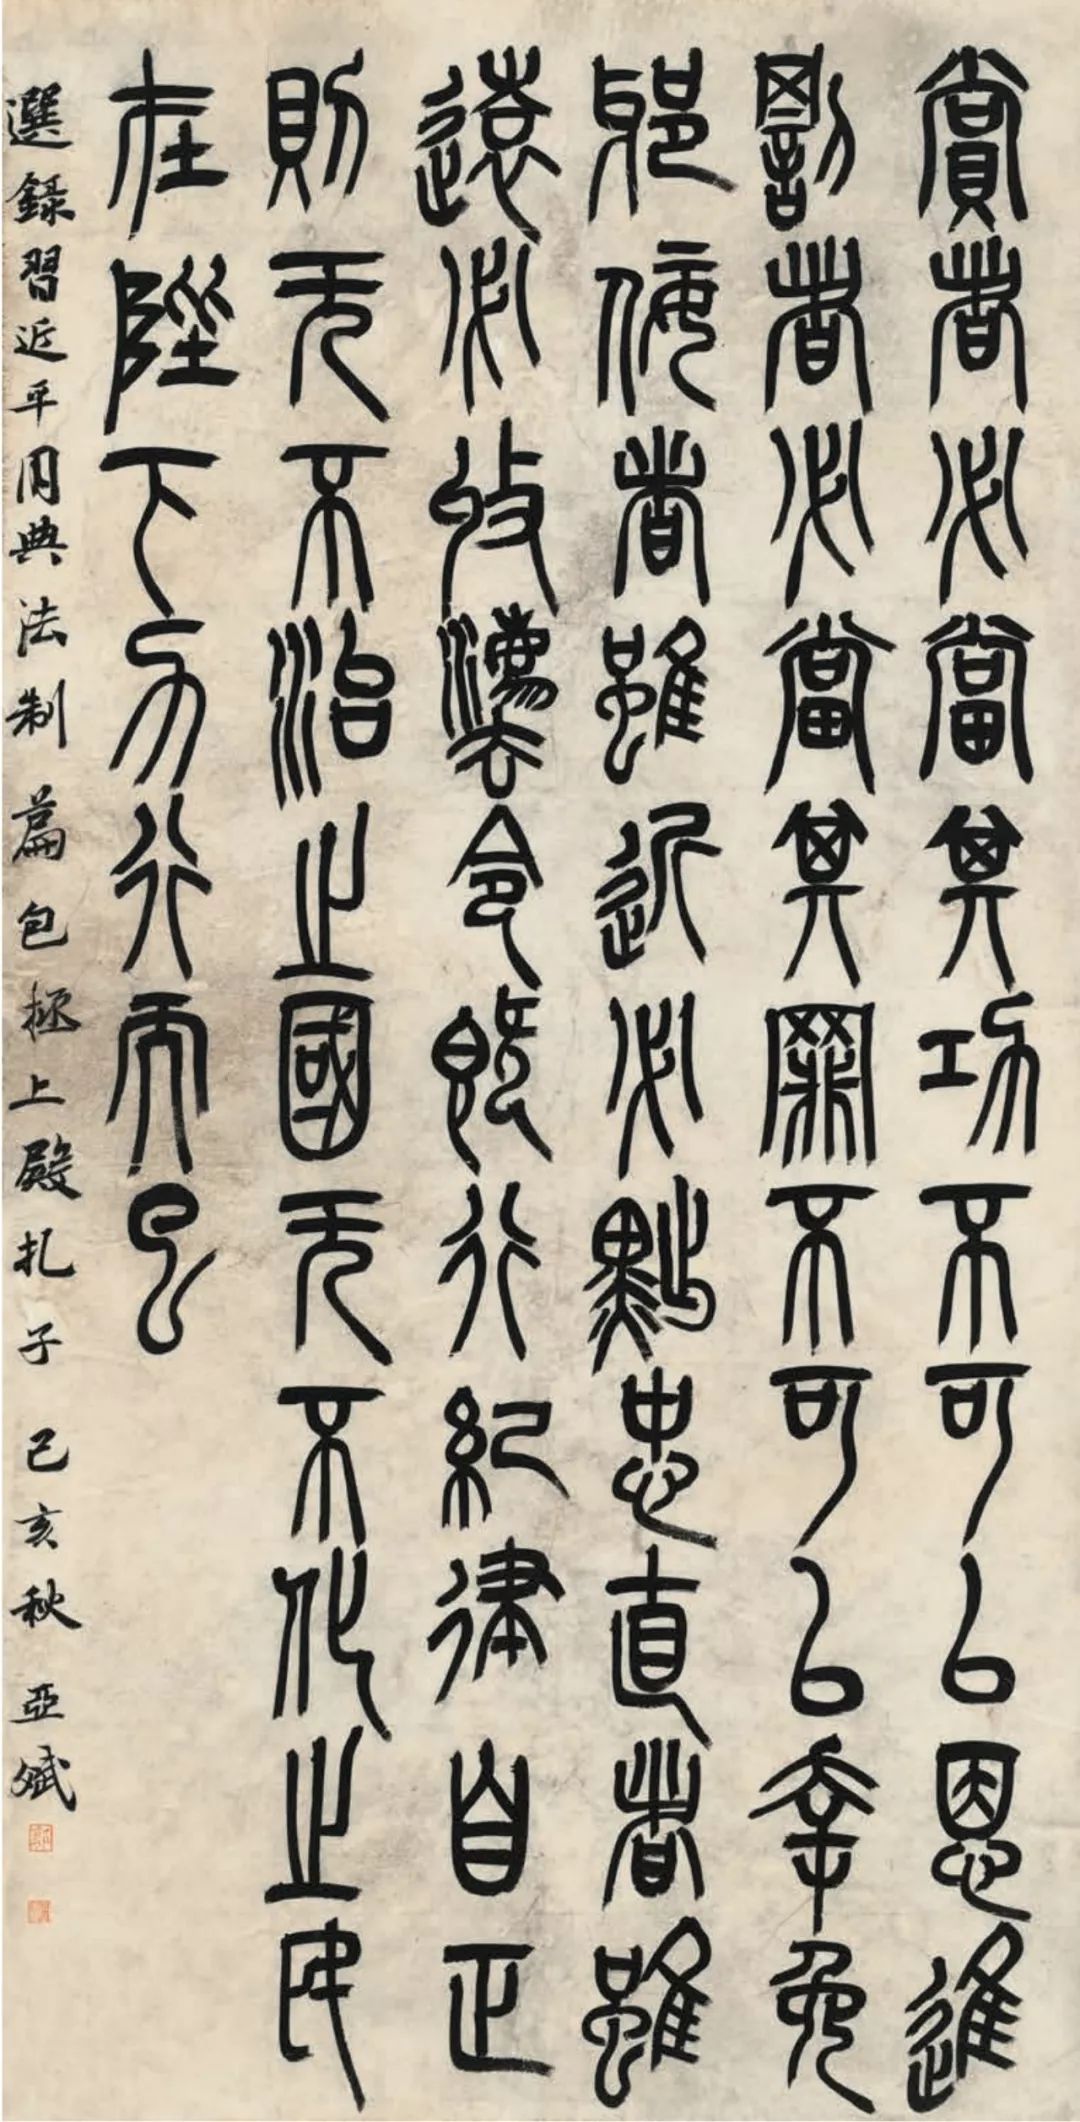 賞者必當其功不可以恩進
罰者必當其罪不可以幸免
邪佞者雖近必黜忠直者雖
遠必收灋令既行紀律自正
則无不治之國无不化之民
在陛下力行而已
選錄習近平用典法制篇包拯上殿扎子己亥秋亞斌